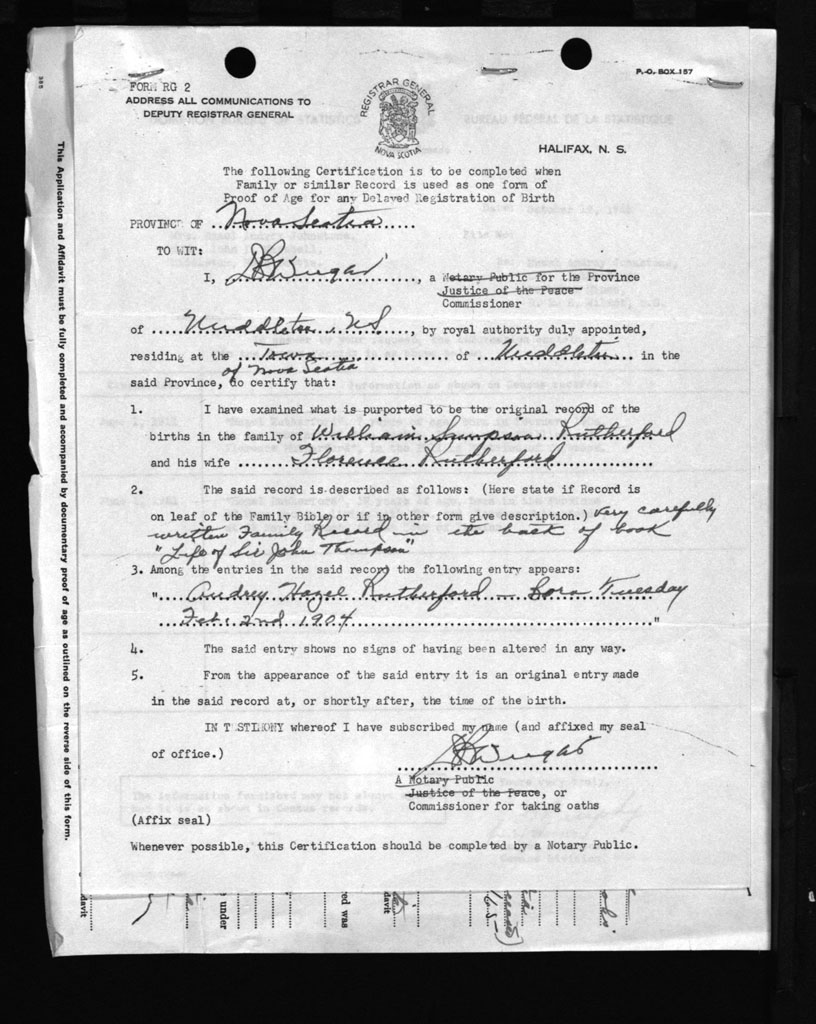 P.O. BOX 157
FORM RG 2
ADDRESS ALL COMMUNICATIONS TO
DEPUTY REGISTRAR GENERAL
REGISTRAR GENERAL
NOVA SCOTIA
HALIFAX, N. S.
The following Certification is to be completed when
Family or similar Record is used as one form of
Proof of Age for any Delayed Registration of Birth
PROVINCE OF Nova Scotia
TO WIT:
I, , a Notary Public for the Province
Justice of the Peace
Commissioner
of Middleton NS, by royal authority duly appointed,
residing at the Town of Middleton in the
of Nova Scotia
said Province, do certify that:
1. I have examined what is purported to be the original record of the
births in the family of William Rutherford
and his wife Florence Rutherford
2. The said record is described as follows: (Here state if Record is
on leaf of the Family Bible or if in other form give description.) very carefully
written Family Record in the back of book
"Life of Sir John Thompson"
3. Among the entries in the said record the following entry appears:
" Audrey Hazel Rutherford - born Tuesday
Feb. 2nd 1904 "
4. The said entry shows no signs of having been altered in any way.
5. From the appearance of the said entry it is an original entry made
in the said record at, or shortly after, the time of the birth.
IN TESTIMONY whereof I have subscribed my name (and affixed my seal
of office.)
A Notary Public
Justice of the Peace, or
Commissioner for taking oaths
(Affix seal)
Whenever possible, this Certification should be completed by a Notary Public.
This Application and Affidavit must be fully completed and accompanied by documentary proof of age as outlined on the reverse side of this form.
davit
under
red was
davit